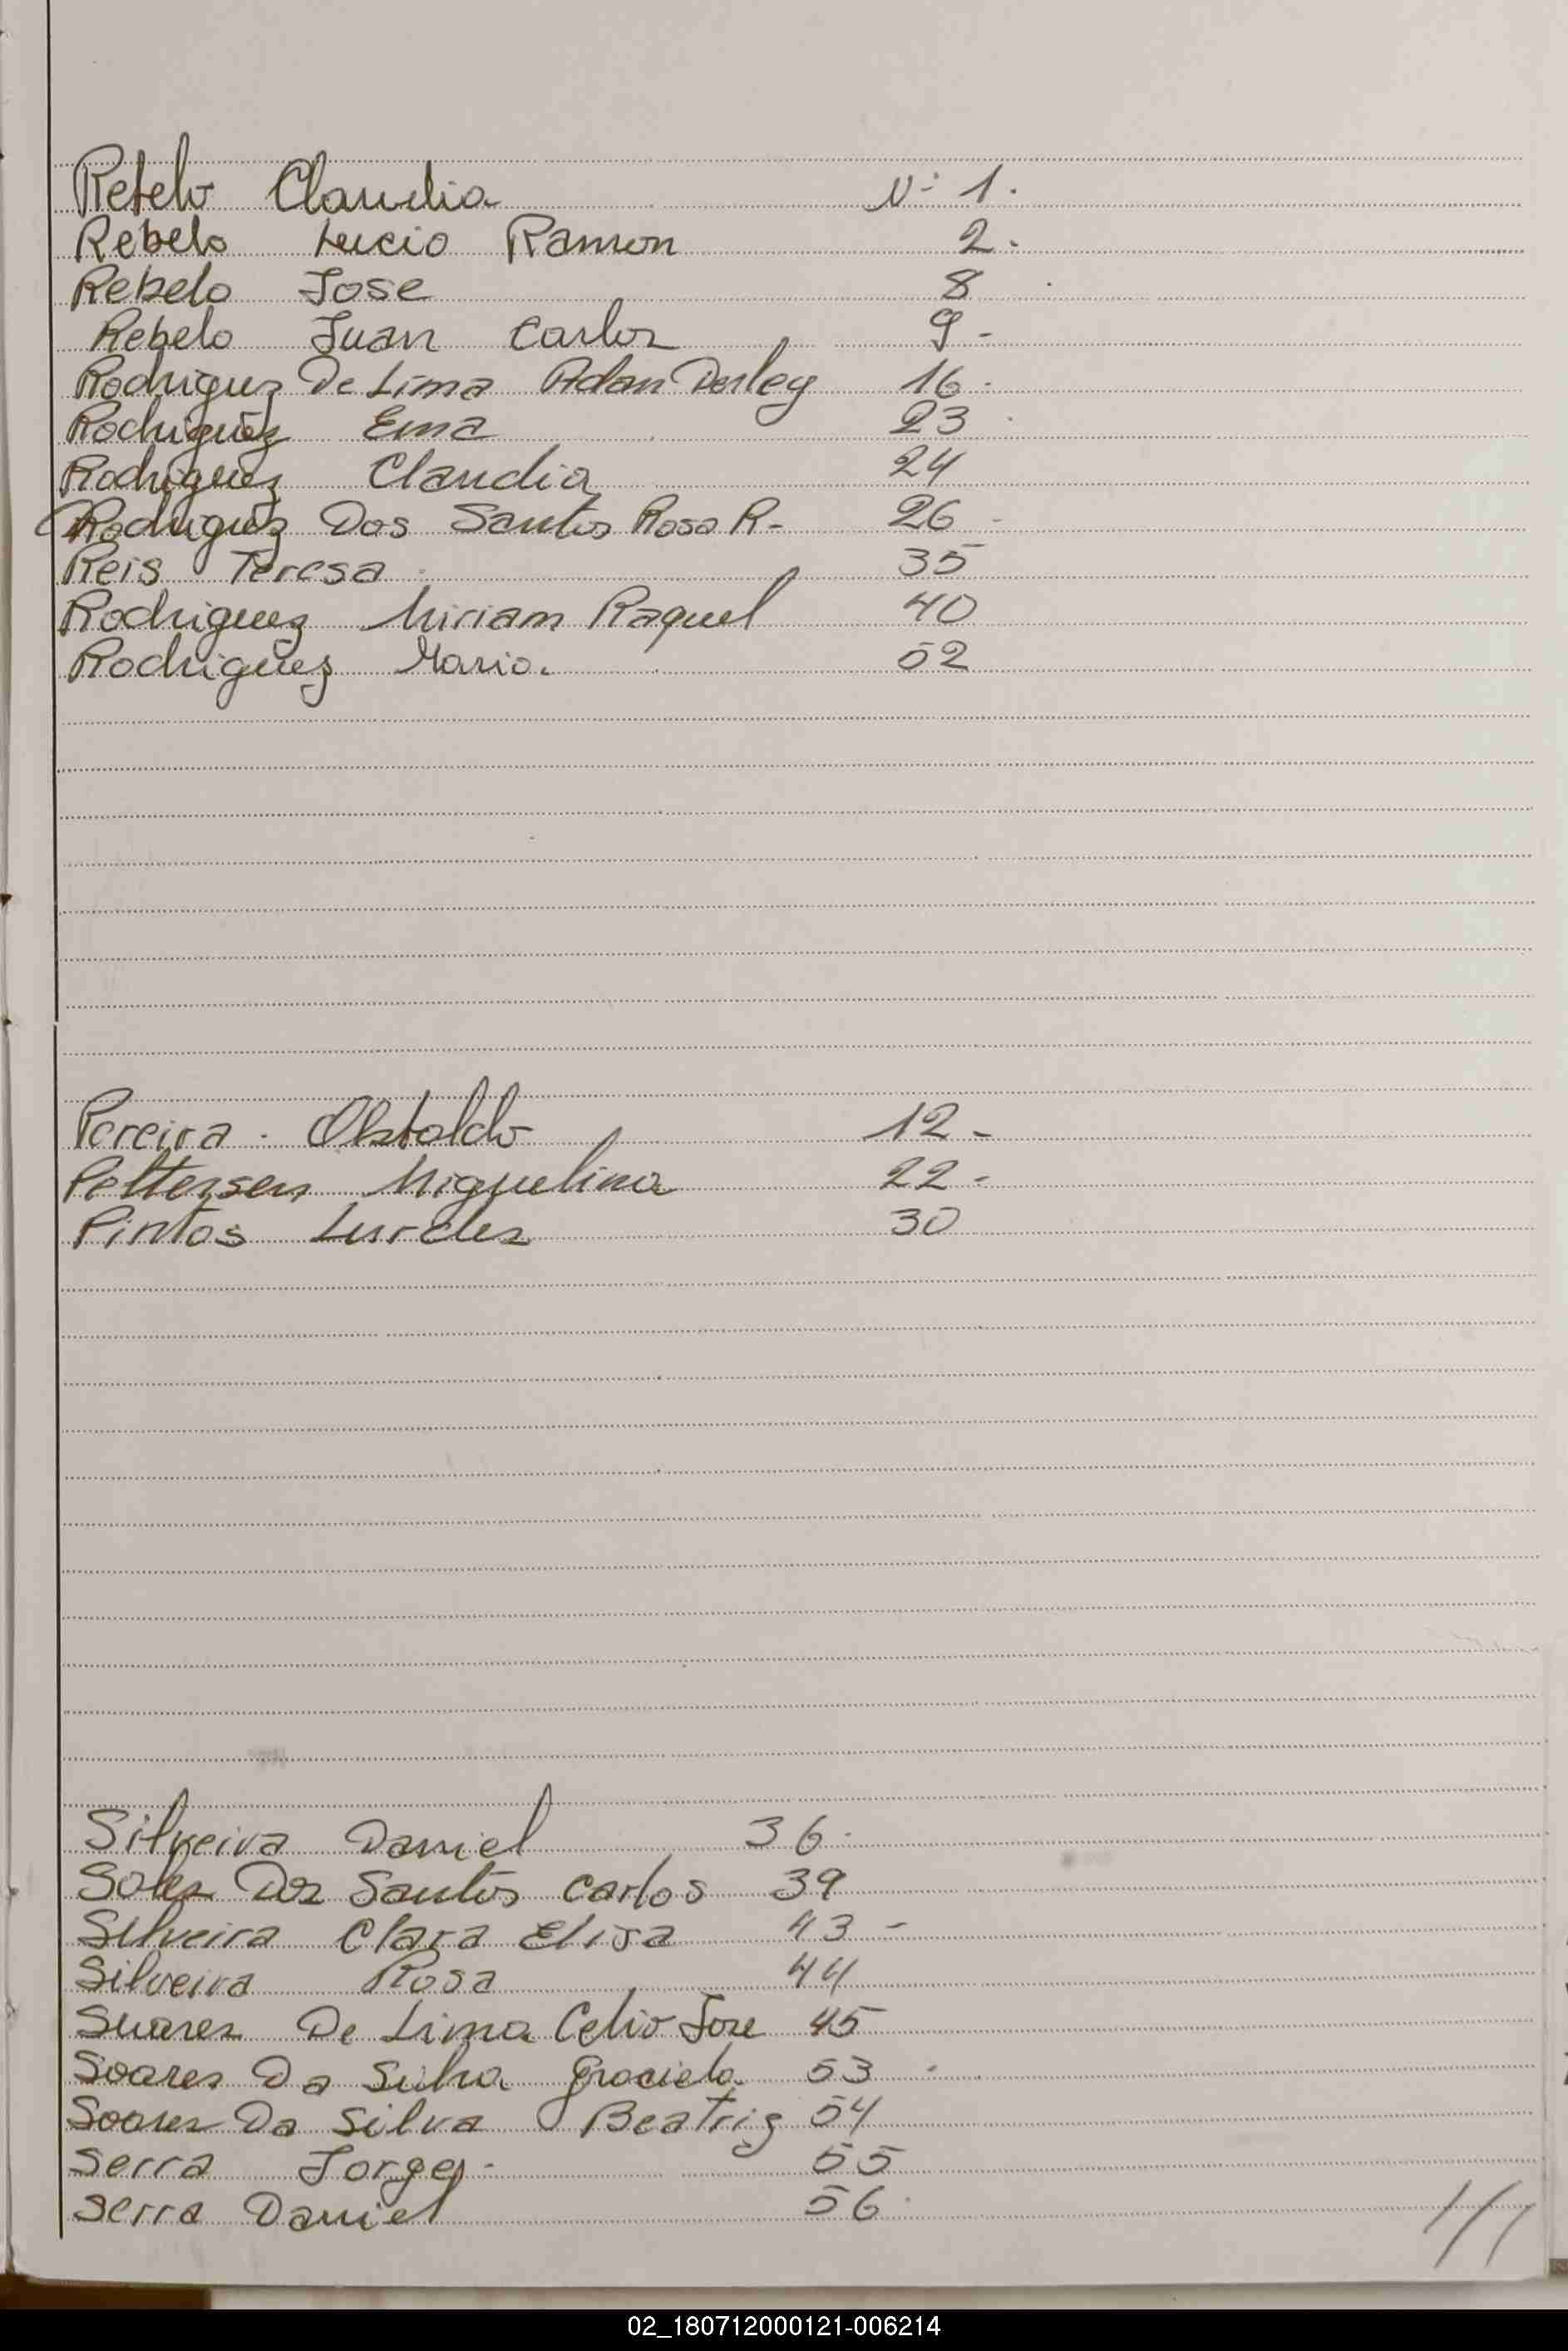 Rebelo Claudia Nº 1.
Rebelo Lucio Ramon 2.
Rebelo Jose 8
Rebelo Juan Carlos 9 -
Rodriguez De Lima Adan Derley 16.
Rodriguez Ema 23
Rodriguez Claudia 24
Rodriguez Dos Santos Rosa R- 26 -
Reis Teresa 35
Rodriguez Miriam Raquel 40
Rodriguez Mario. 52
Pereira - 12 -
Pettersen Miguelina 22 -
Pintos Lurdes 30
Silveira Daniel 36.
Soles Dos Santos Carlos 39
Silveira Clara Elisa 43 -
Silveira Rosa 44
Suares De Lima Celio Jose 45
Soares Da Silva Graciela 53 .
Soares Da Silva Beatriz 54
Serra Jorge. - 55
Serra Daniel 56.
02_180712000121-006214